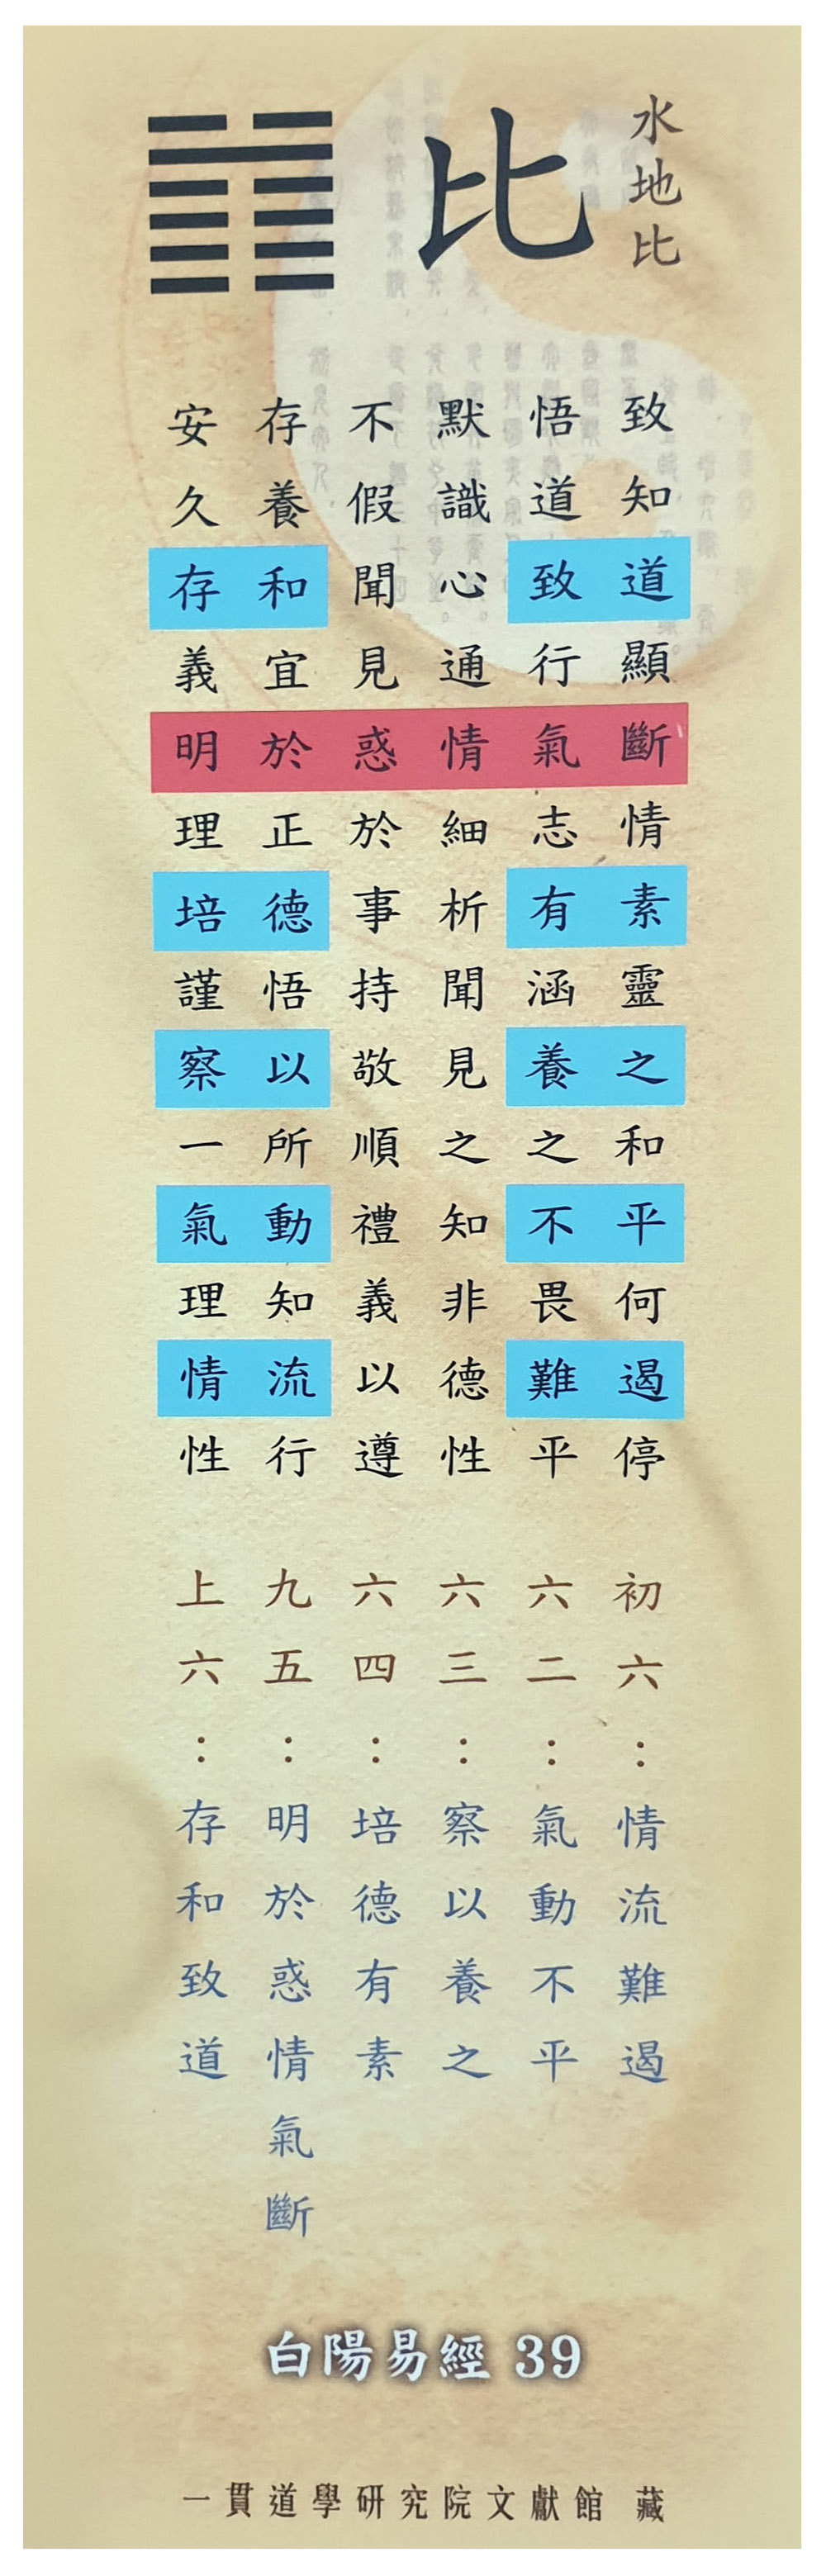 水地比
比
致知道顯斷情素靈之和平何遏停
悟道致行氣志有涵養之不畏難平
默識心通情細析聞見之知非德性
不假聞見惑於事持敬順禮義以遵
存養和宜於正德悟以所動知流行
安久存義明理培謹察一氣理情性
初六：情流難遏
六二：氣動不平
六三：察以養之
六四：培德有素
九五：明於惑情氣斷
上六：存和致道
白陽易經 39
一貫道學研究院文獻館 藏